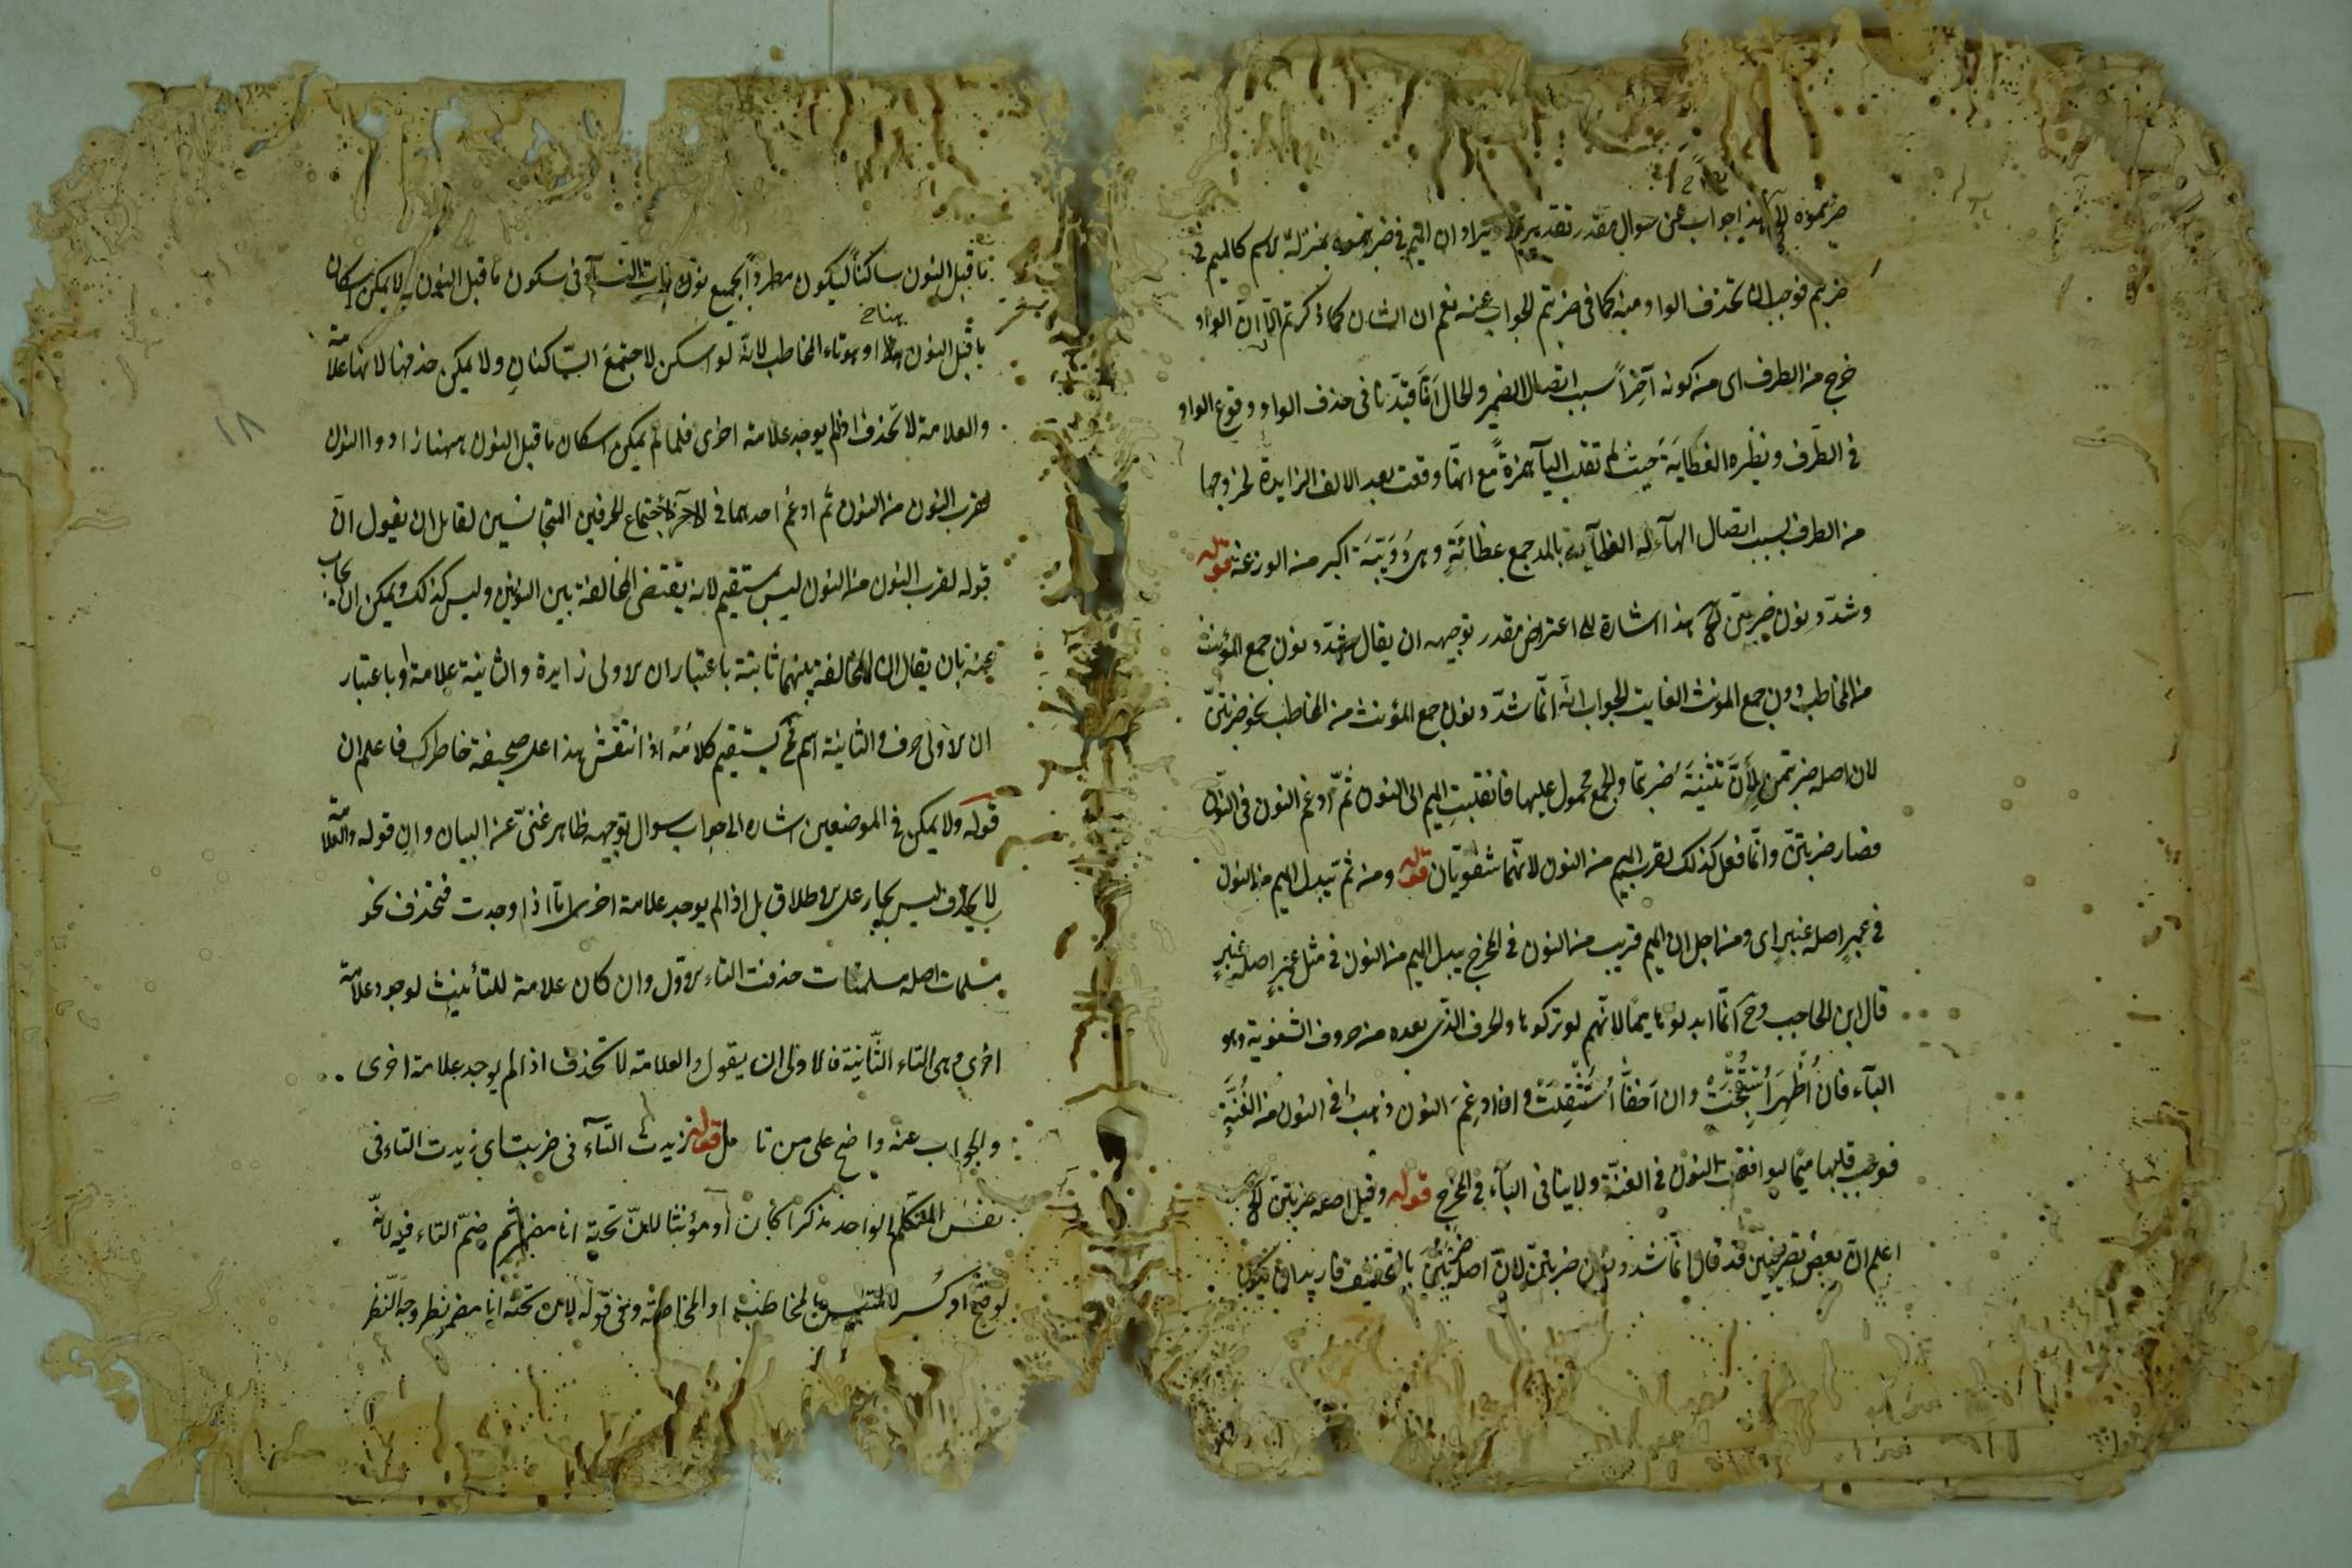 ضربتموه الخ هذا جواب عن سوال مقدر تقديره ان الميم في ضربتموه بمنزلة الاسم كالميم في
ضربتم فوجب ان تحذف الواو منه كما في ضربتم الجواب عنه نعم ان الشان كما ذكرتم الا ان الواو
خرج من الطرف اى من كونه آخراً بسبب اتصال الضمير والحال انا قيدنا في حذف الواو وقوع الواو
في الطرف ونظيره العظاية حيث لم تقلب اليآ همزةً مع انها وقعت بعد الالف الزايدة لخروجها
من الطرف بسبب اتصال الهآء له العظاية بالمد جمع عظائة وهى دويبة اكبر من الوزغة قوله
وشدد نون ضربتن الخ هذا اشارة الى اعتراض مقدر توجيهه ان يقال شدد نون جمع المؤنث
من المخاطب دون جمع المونث الغايب الجواب انه انما شدد نون جمع المؤنث من المخاطب نحو ضربتن
لان اصله ضربتمن لان تثنيته ضربتما والجمع محمول عليها فانقلبت الميم الى النون ثم ادغم النون في النون
فصار ضربتن وانما فعل كذلك لقرب الميم من النون لانهما شفويتان قوله ومن ثم تبدل الميم من النون
في عمبر اصله عنبر اى ومن اجل ان الميم قريب من النون في المخرج يبدل الميم من النون في مثل عمبر اصله عنبر
قال ابن الحاجب وح انما ابدلوها ميما لانهم لو تركوها والحرف الذى بعده من حروف الشفوية وهو
البآء فان أُظهرَ استُقبحت وان اخفا استُثقلت وان ادغم النون ذهب ما في النون من الغنة
فوجب قلبها ميما ليوافقت النون في الغنة ولا ينافى البآء في المخرج قوله وقيل اصله ضربتن الخ
اعلم ان بعض تصريفيين قد قال انما شدد نون ضربتن لان اصله ضربتن بالتخفيف فاريد ان يكون
ما قبل النون ساكناً ليكون مطرداً لجميع نونات النسآء في سكون ما قبل النون لا يمكن اسكان
ما قبل النون هنا وهو تاء المخاطب لانه لو اسكن لاجتمع الساكنان ولا يمكن حذفها لانها علامة
والعلامة لا تحذف اذ لم يوجد علامة اخرى فلما لم يمكن اسكان ما قبل النون ههنا زادوا النون
لقرب النون من النون ثم ادغم احدهما في الآخر لاجتماع الحرفين المتجانسين لقايل ان يقول ان
قوله لقرب النون من النون ليس بمستقيم لانه يقتضى المخالفة بين النونين وليس كذلك ويمكن ان يجاب
عنه بان يقال ان المخالفة بينهما ثابتة باعتبار ان الاولى زايدة والثانية علامة او باعتبار
ان الاولى حرف والثانية اسم فح يستقيم كلامه اذا انتقش هذا على صحيفة خاطرك فاعلم ان
قوله ولا يمكن في الموضعين اشاره الى جواب سوال توجيهه ظاهر غنى عن البيان وان قوله والعلامة
لا يحذف ليس بجار على الاطلاق بل اذا لم يوجد علامة اخرى اما اذا وجدت فتحذف نحو
مسلمات اصله مسلمتات حذفت التاء الاول وان كان علامة للتأنيث لوجود علامة
اخرى وهى التاء الثانية فالاولى ان يقول والعلامة لا تحذف اذا لم يوجد علامة اخرى
والجواب عنه واضح على من تامل قوله زيدت التآء في ضربت اى زيدت التاء في
نفس المتكلم الواحد مذكرا كان او مؤنثا لان تحته انا مضمر ثم ضم التاء فيه لانه
لو فتح او كسر لالتبس بالمخاطب او المخاطبة وفي قوله لان تحته انا مضمر نظر وجه النظر
١٨